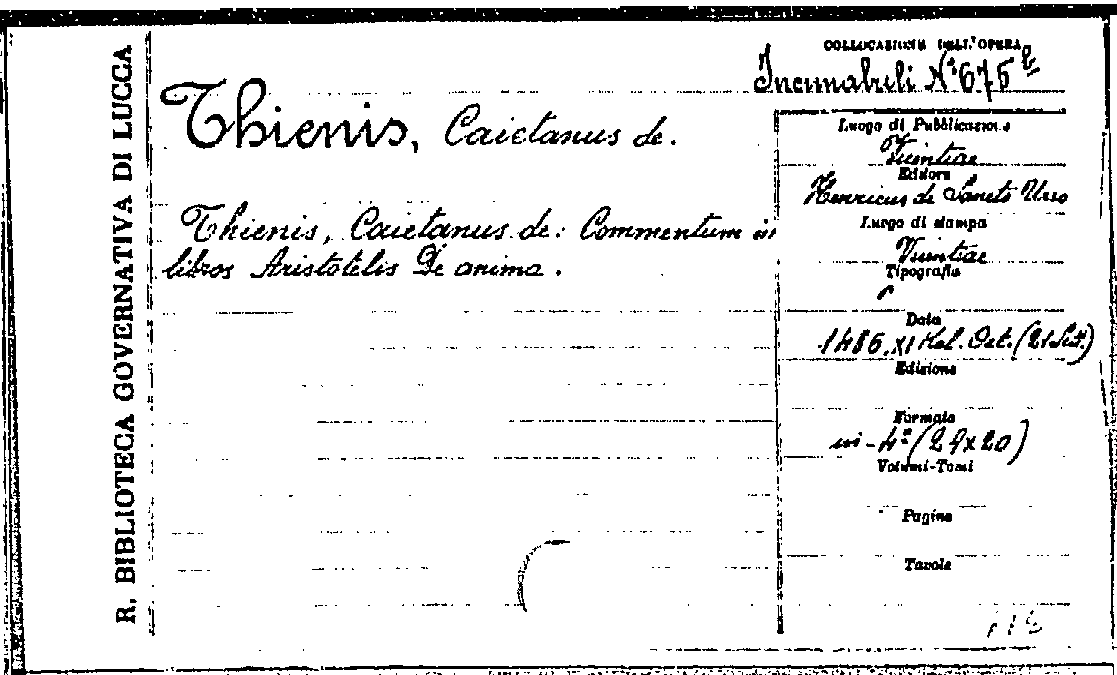 R. BIBLIOTECA GOVERNATIVA DI LUCCA
COLLOCAZIONE DELL'OPERA
Incunabuli N° 675 b
Thienis, Caietanus de.
Thienis, Caietanus de: Commentum in
libros Aristotelis De anima.
Luogo di Pubblicazione
Vicentiae
Editore
Henricus de Sancto Urso
Luogo di stampa
Vicentiae
Tipografia
Data
1486, XI Kal. Oct. (21 Set.)
Edizione
Formato
in-4° (29x20)
Volumi-Tomi
Pagine
Tavole